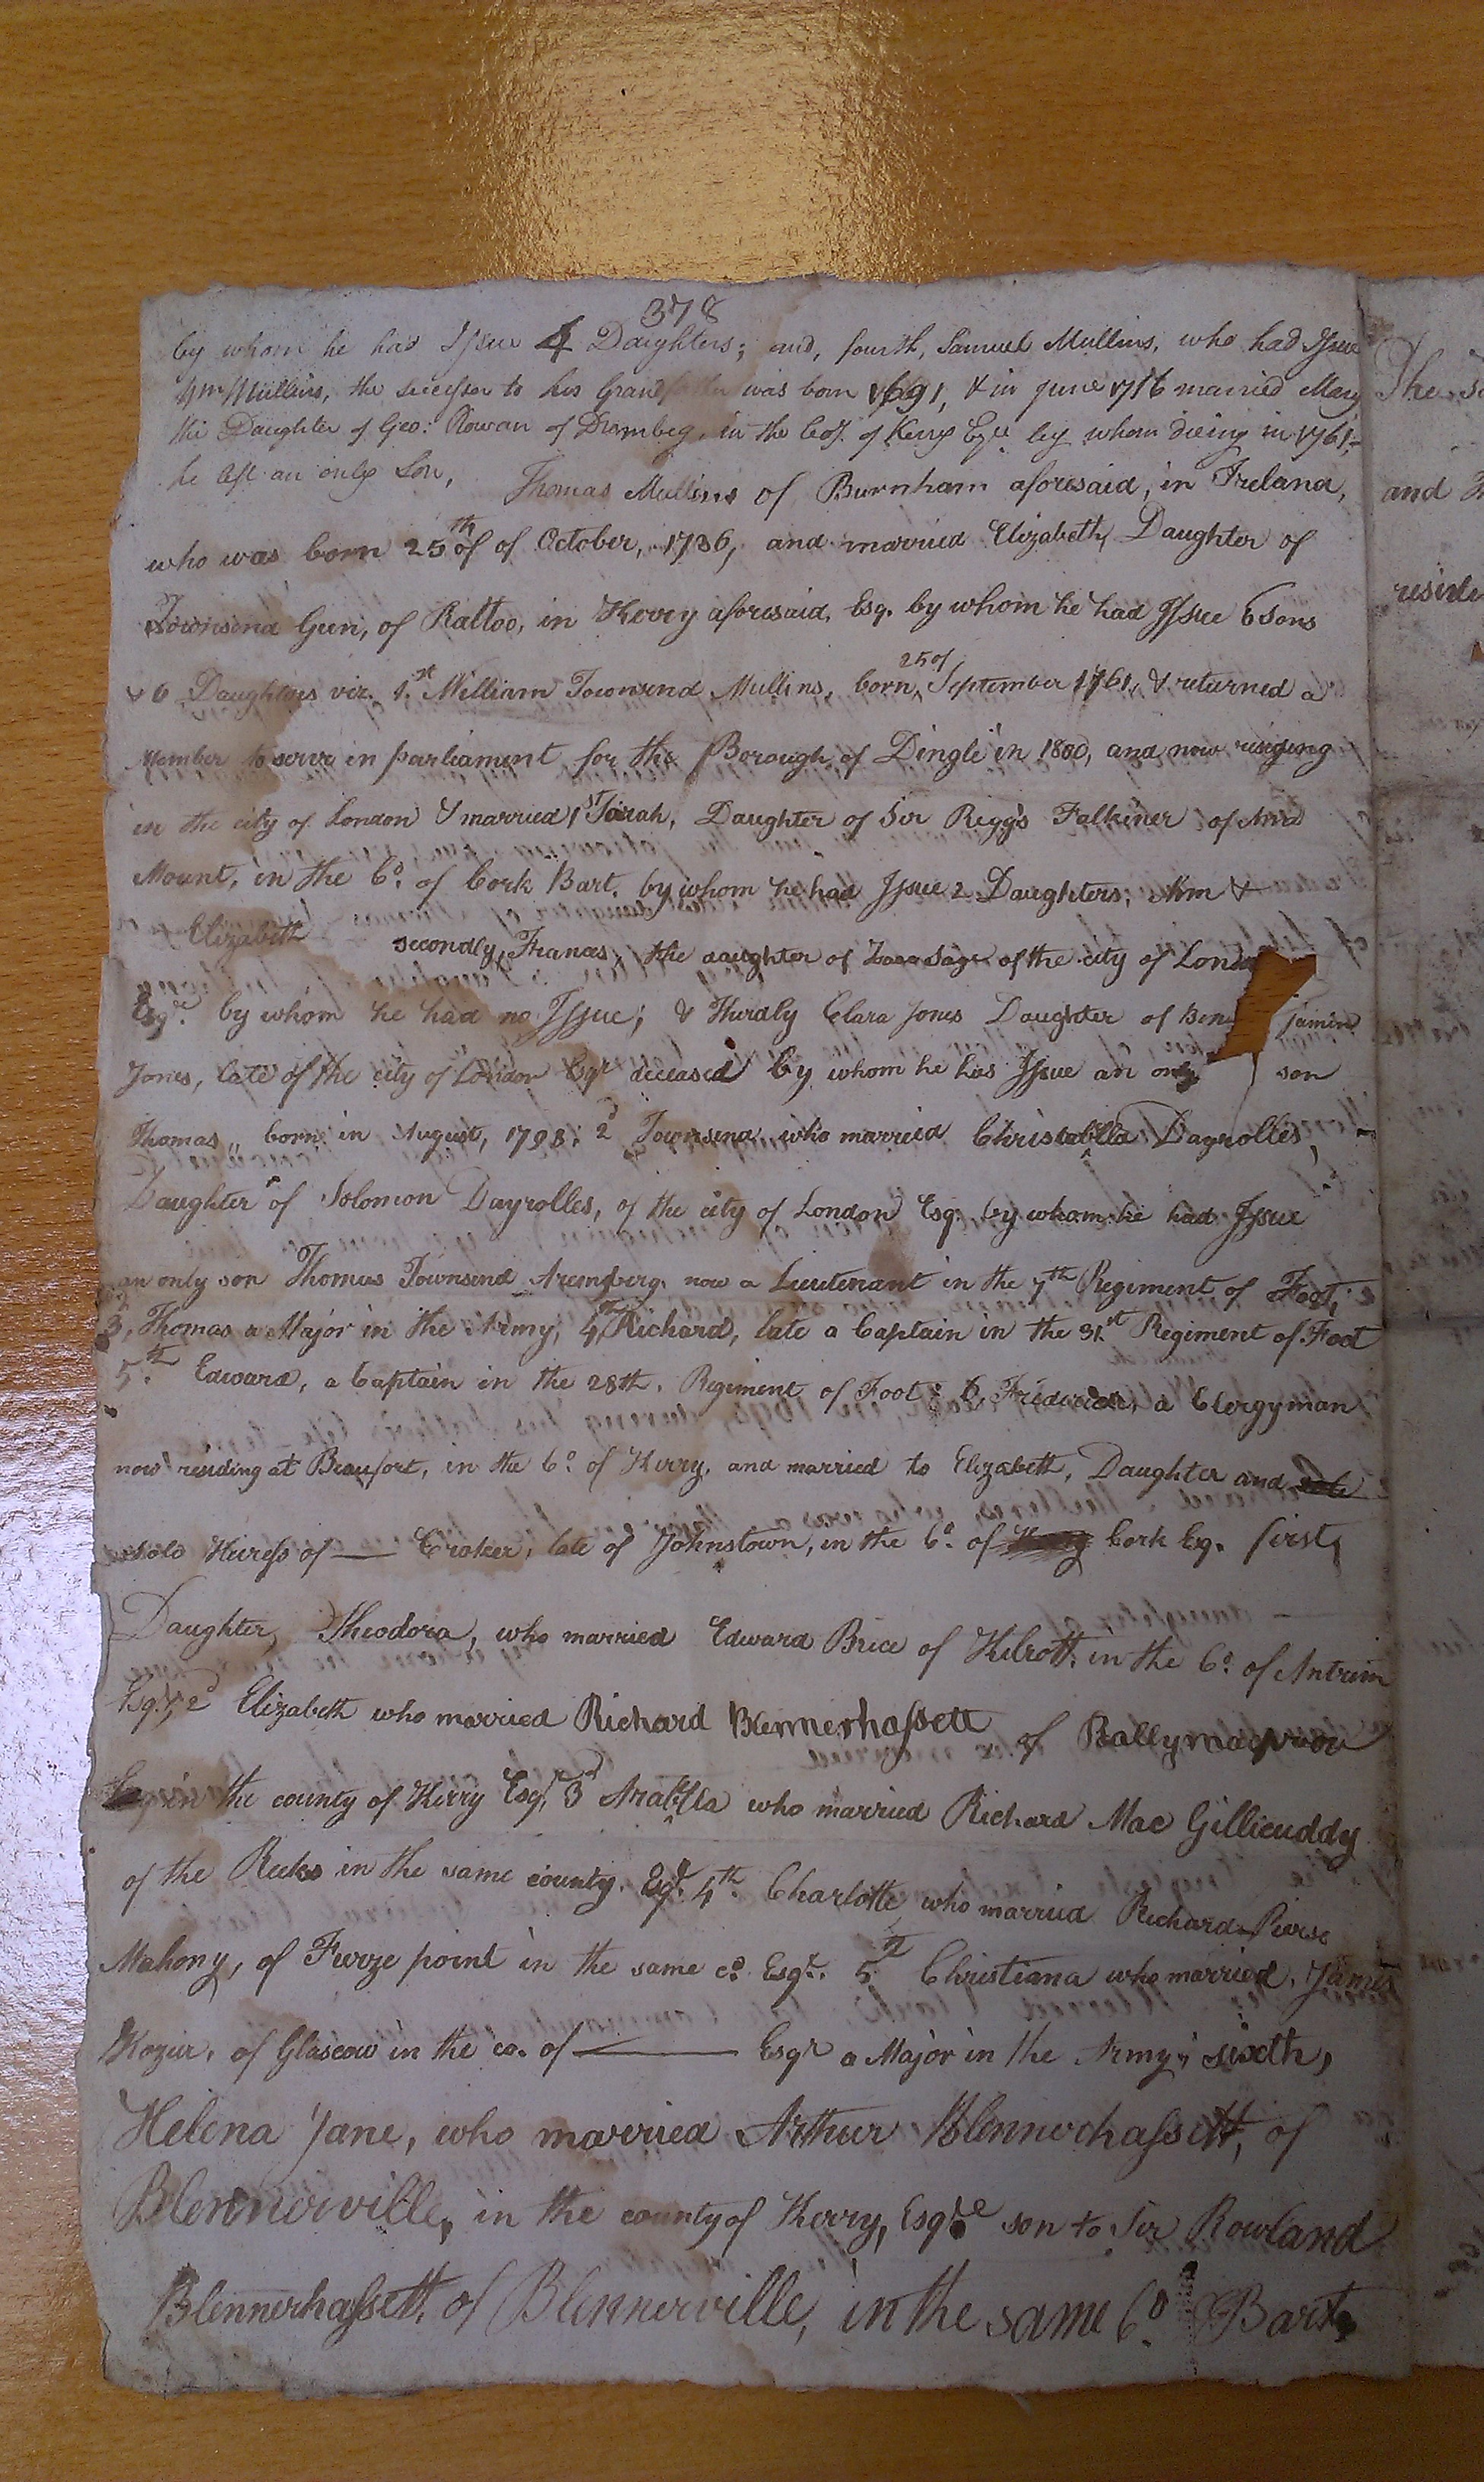 378
by whom he has Issue 4 Daughters; and, fourth, Samuel Mullins, who had Issue
Wm Mullins, the successor to his Grandfather was born 1691, & in June 1716 married Mary
the Daughter of Geo: Rowan of Drambeg, in the Coy. of Kerry Esqr. by whom dieing in 1761,
he left an only Son,
Thomas Mullins of Burnham aforesaid, in Ireland,
who was born 25th of of October, 1736, and married Elizabeth, Daughter of
Townsend Gun, of Rattoo, in Kerry aforesaid, Esq. by whom he had Issue 6 Sons
& 6 Daughters viz. 1.st William Townsend Mullins, born, 25 of September 1761, & returned a
Member to serve in parliament for the Borough of Dingle in 1800, and now residing
in the city of London & married 1st Sarah, Daughter of Sir Riggs Falkiner of Ann
Mount, in the Co. of Cork Bart. by whom he had Issue 2 Daughters, Ann &
Elizabeth
secondly, Frances, the daughter of Sage of the city of London
Esqr. by whom he had no Issue; & Thirdly Clara Jones Daughter of Ben jamin
Jones, late of the city of London Esqr deceased by whom he has Issue an only son
Thomas, born in August, 1798. 2d Townsend who married Christabella Dayrolles,
Daughter of Solomon Dayrolles, of the city of London Esq. by whom he had Issue
an only son Thomas Townsend Aremberg now a Lieutenant in the 7th Regiment of Foot,
3d, Thomas a Major in the Army, 4th Richard, late a Captain in the 31st Regiment of Foot
5th. Edward, a Captain in the 28th. Regiment of Foot; 6, Frederick, a Clergyman
now residing at Beaufort, in the Co. of Kerry, and married to Elizabeth, Daughter and sole
sole Heiress of —— Croker, late of Johnstown, in the Co. of Kerry Cork Esq. first,
Daughter, Theodora, who married Edward Brice of Kilrott. in the Co. of Antrim
Esqr, 2d Elizabeth who married Richard Blennerhassett of Ballymacprior
in the county of Kerry Esqr, 3d Arabella who married Richard Mac Gillicuddy
of the Reeks in the same county. Esqr. 4th. Charlotte who married Richard Pierse
Mahony, of Feroze point in the same co. Esqr. 5th Christiana who married, James
Hozier, of Glascow in the co. of ——— Esqr a Major in the Army; sixth,
Helena Jane, who married Arthur Blennerhassett, of
Blennerville, in the county of Kerry, Esqre son to Sir Rowland
Blennerhassett, of Blennerville, in the same Co. Bart.
The
and